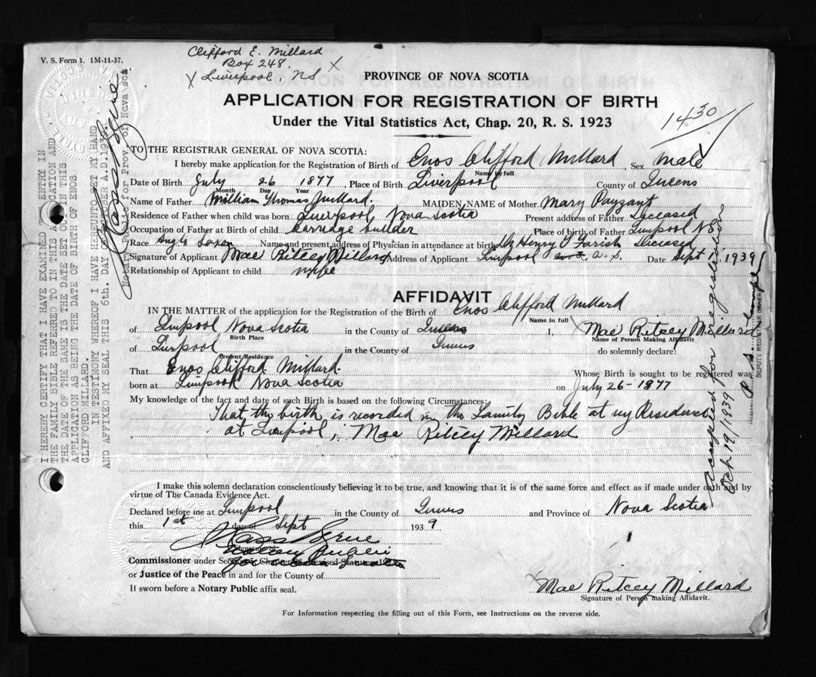 V. S. Form 1. 1M-11-37.
Clifford E. Millard
Box 248.
Liverpool, NS
PROVINCE OF NOVA SCOTIA
APPLICATION FOR REGISTRATION OF BIRTH
Under the Vital Statistics Act, Chap. 20, R. S. 1923
1430
TO THE REGISTRAR GENERAL OF NOVA SCOTIA:
I hereby make application for the Registration of Birth of Enos Clifford Millard Sex male
Name in full
Date of Birth July 26 1877 Place of Birth Liverpool County of Queens
Month Day Year
Name of Father William Thomas Millard. MAIDEN NAME of Mother Mary Payzant
Residence of Father when child was born Liverpool, Nova Scotia Present address of Father Deceased
Occupation of Father at Birth of child Carriage builder Place of birth of Father Liverpool N.S.
Race Anglo Saxon Name and present address of Physician in attendance at birth Dr Henry G Farish Deceased
Signature of Applicant Mae Ritcey Millard Address of Applicant Liverpool N.S. Date Sept 1, 1939
Relationship of Applicant to child wife
AFFIDAVIT
IN THE MATTER of the application for Registration of the Birth of Enos Clifford Millard
Name in full
of Liverpool Nova Scotia in the County of Queens I, Mae Ritcey Millard
Birth Place Name of Person Making Affidavit
of Liverpool in the County of Queens do solemnly declare:
Present Residence
That Enos Clifford Millard. Whose Birth is sought to be registered was
born at Liverpool Nova Scotia on July 26-1877
My knowledge of the fact and date of such Birth is based on the following Circumstances:
That the birth is recorded in the Family Bible at my Residence
at Liverpool, Mae Ritcey Millard
I make this solemn declaration conscientiously believing it to be true, and knowing that it is of the same force and effect as if made under oath and by
virtue of The Canada Evidence Act.
Declared before me at Liverpool in the County of Queens and Province of Nova Scotia
this 1st day Sept 1939
Notary Public
Commissioner under
or Justice of the Peace in and for the County of
If sworn before a Notary Public affix seal.
Mae Ritcey Millard
Signature of Person making Affidavit.
For Information respecting the filling out of this Form, see Instructions on the reverse side.
I HEREBY CERTIFY THAT I HAVE EXAMINED THE ENTRY IN
THE FAMILY BIBLE REFERRED TO IN THIS APPLICATION AND
THE DATE OF THE SAME IS THE DATE SET OUT IN THIS
APPLICATION AS BEING THE DATE OF BIRTH OF ENOS
CLIFFORD MILLARD.
IN TESTIMONY WHEREOF I HAVE HEREUNTO SET MY HAND
AND AFFIXED MY SEAL THIS 6th. DAY OF OCTOBER A.D.1939
Notary Public for Prov. of Nova Scotia
Accepted for registration
Oct. 19/1939
DEPUTY REGISTRAR GENERAL